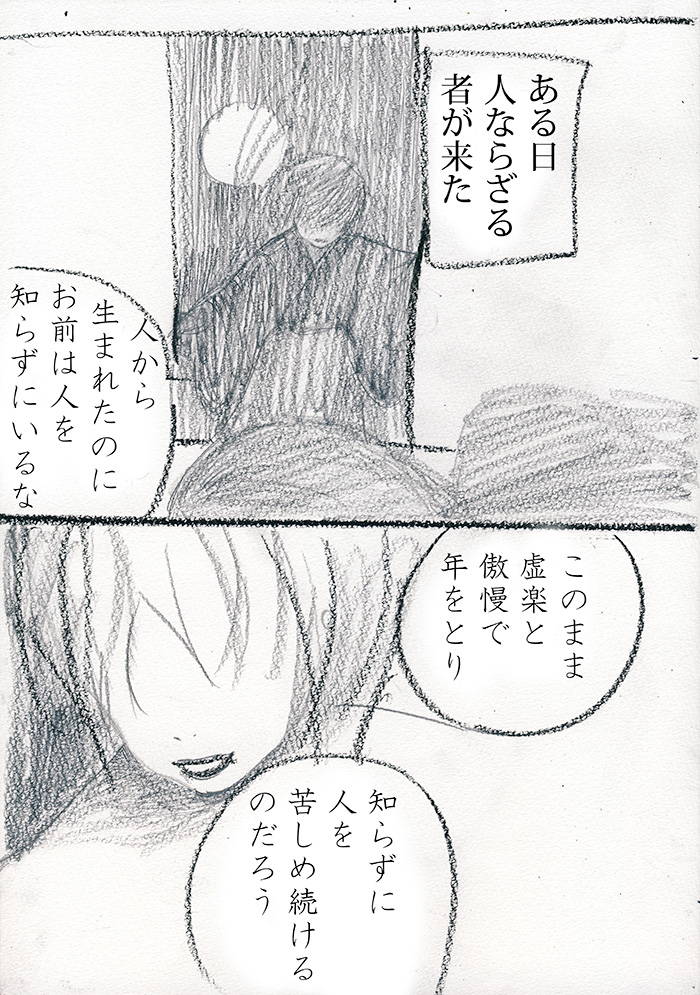 ある日
人ならざる
者が来た
人から
生まれたのに
お前は人を
知らずにいるな
このまま
虚楽と
傲慢で
年をとり
知らずに
人を
苦しめ続ける
のだろう